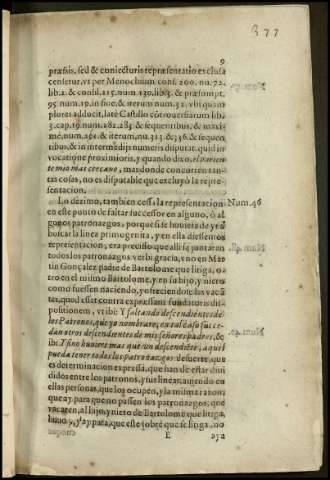 377
9
præsiis, sed & coniecturis repræsentatio exclusa
censetur. vt per Menochium cons. 200. nu. 72.
lib. 2. & consil. 215. num. 130. lib. 3. & præsumpt.
95. num. 19. in fine, & iterum num. 31. vbi quam
plores adducit, latè Castillo cōtrouersiarum lib.
3. cap. 19. num. 282. 283. & sequentibus, & maximè
num. 291. & iterum, nu. 313. & 336. & sequentibus,
& in intermedijs numeris disputat. quid in
vocatione proximioris, y quando dixo, el pariente
mio mas cercano, mas donde concurren tantas
cosas, no es disputable que excluyò la representacion.
Lo dezimo, tambien cessa la representacion Num. 46
en este punto de faltar successor en alguno, ò algunos
patronazgos, porque si se huuiera de yr à
buscar la linea primogenita, y en ella diessemos
representacion, era preciso que alli se juntaran
todos los patronazgos. verbi gracia, vno en Martin
Gonçalez padre de Bartolome que litiga, otro
en el mismo Bartolome, y en su hijo, y nietos
como fuessen naciendo, y ofreciendose las vacātes,
quod esset contra expressam fundatoris dispositionem,
et ibi: Y faltando descendientes de
los Patronos, que yo nombrare, en tal caso sucedan
otros descendientes de mis señores padres, &
ibi. Y sino huuiere mas que vn descendiēte, aquel
pueda tener todos los patronazgos: de suerte, que
es determinacion expressa, que han de estar diuididos
entre los patronos, y sus lineas, auiendo en
ellas personas, que los ocupen, y la misma razon
que ay para que no passen los patronazgos, que
vacaren, al hijo, y nieto de Bartolome que litiga,
E aya